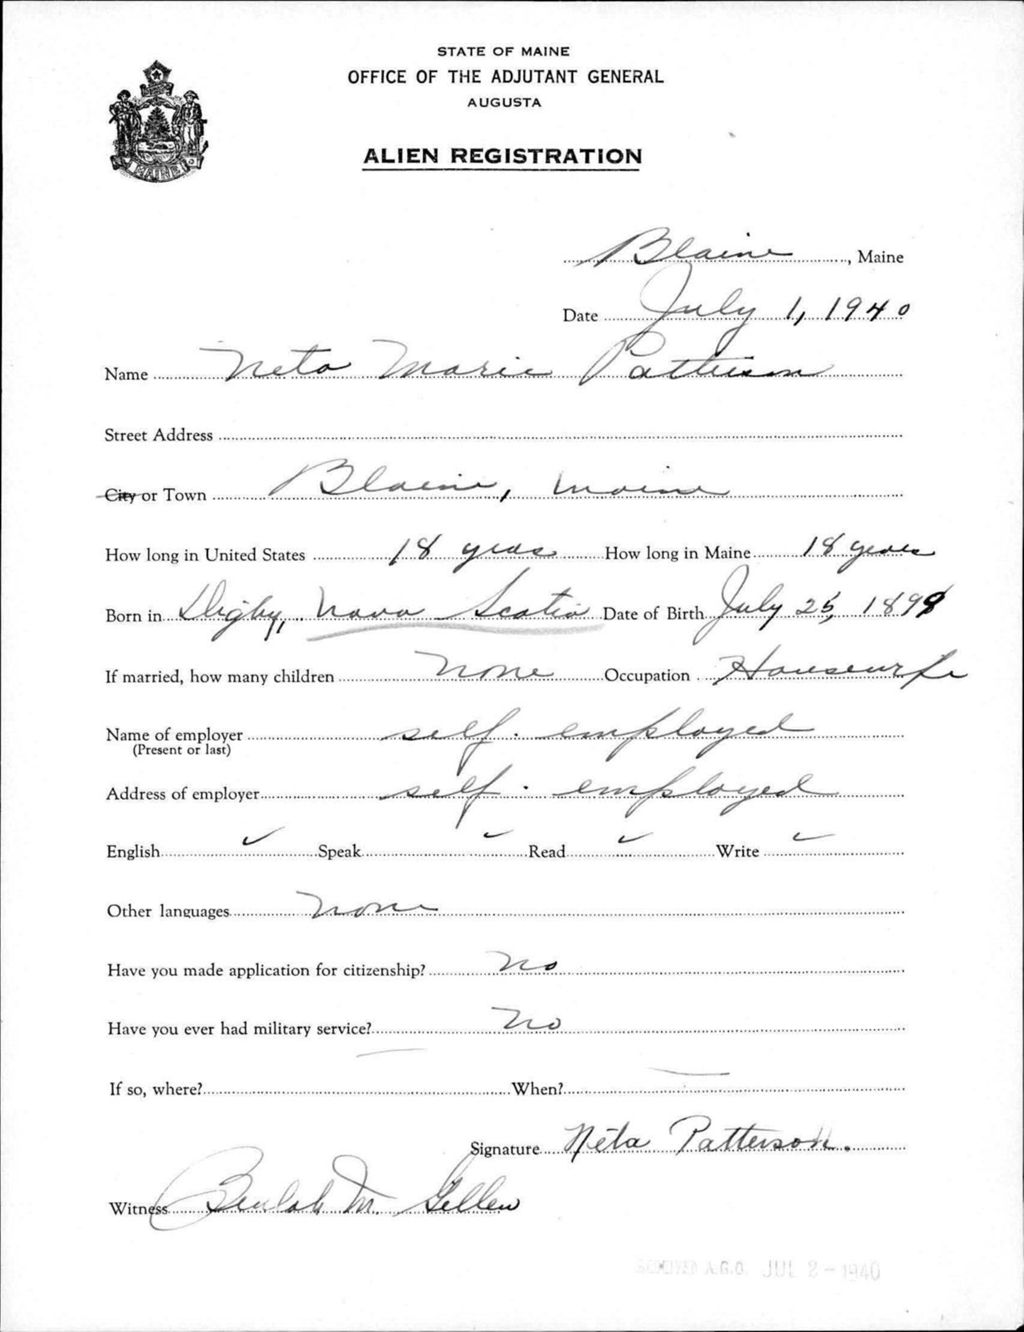 STATE OF MAINE
OFFICE OF THE ADJUTANT GENERAL
AUGUSTA
ALIEN REGISTRATION
MAINE
Blaine, Maine
Date July 1, 1940
Name Neta Marie Patterson
Street Address
City or Town Blaine, Maine
How long in United States 18 years How long in Maine 18 years
Born in Digby, Nova Scotia Date of Birth July 25, 1898
If married, how many children none Occupation Housewife
Name of employer self. employed
(Present or last)
Address of employer self. employed
English ✓ Speak ✓ Read ✓ Write ✓
Other languages none
Have you made application for citizenship? no
Have you ever had military service? no
If so, where? — When? —
Signature Neta Patterson.
Witness Beulah M.
RECEIVED A.G.O. JUL 2 - 1940